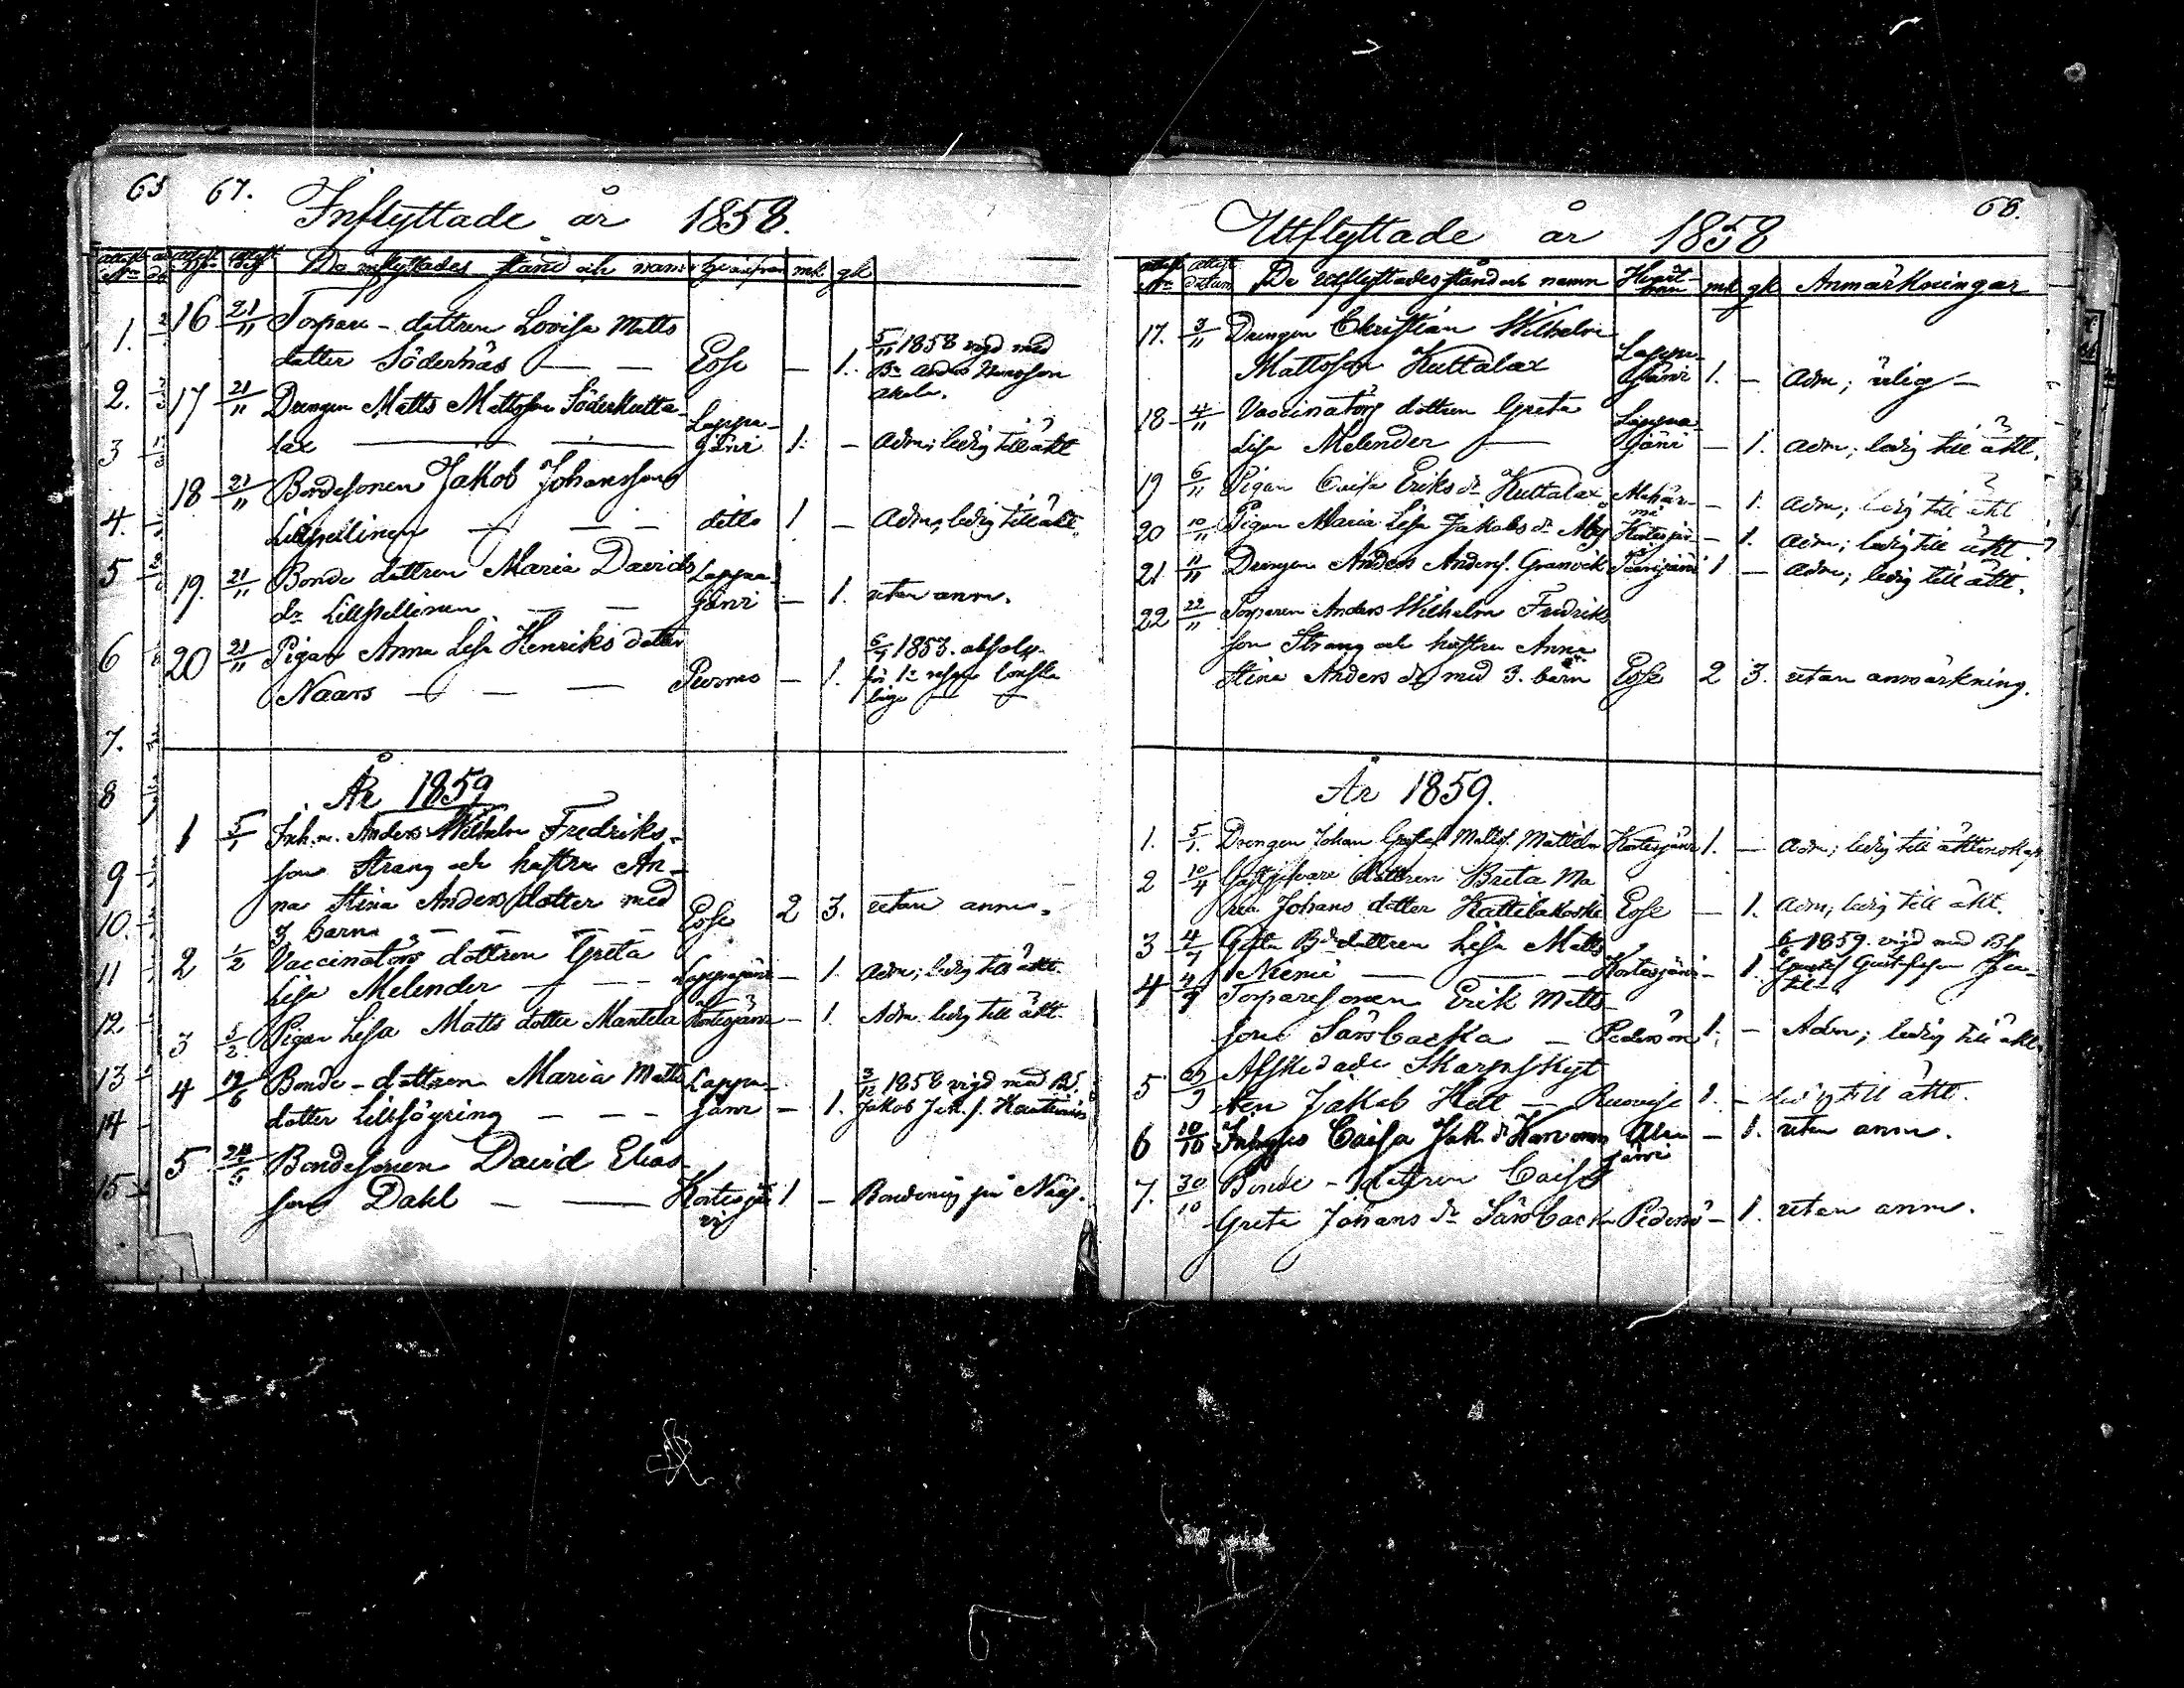 65 67. Inflyttade år 1858.
attest No attest De inflyttades stånd och namn mk. qk
16 21/11 Torpare-dottren Lovisa Matts
dotter Södernäs — — Esse — 1. 5/11 1858 vigd med
Bn Anders Hansson
17 21/11 Drengen Matts Mattsson Söderkutta-
lax — — Lappa-
järvi 1. — Adm; ledig till äkt
18 21/11 Bondesonen Jakob Johansson
Lillpellinen — — — ditto 1 — Adm; ledig till äkt.
19. 21/11 Bonde dottren Maria Davids
dr Lillpellinen — — Lappa-
järvi — 1. utan anm.
20 21/11 Pigan Anna Lisa Henriks dotter
Naars — — — Purmo — 1. 1853. absolv.
för 1a resan lönska
läge — —
År 1859
1 5/1 Inh.n. Anders Wilhelm Fredriks-
son Strang och hustru An-
na Stina Anders dotter med
3 barn — — — — Esse 2 3. utan anm.
2 1/2 Vaccinators dottren Greta
Lisa Melender — — — Lappajärvi — 1. Adm; ledig till äkt.
3 5/2 Pigan Lisa Matts dotter Mantela Kortesjärvi — 1. Adm. ledig till äkt.
4 19/6 Bonde-dottren Maria Matts
dotter Lillsögring — — — Lappa-
järvi — 1. 3/12 1858 vigd med Bd.
Jakob Jak.s.
5 Bondesonen David Elias-
son Dahl — — Kortesjär
vi 1 — Bondemåg på Näs.
1.
2.
3
4.
5
6
7.
8
9
10.
11
12.
13
14
15
68.
Utflyttade år 1858
attest No attest datum De Utflyttades stånd och namn Hvart mk qk Anmärkningar
17. 3/11 Drengen Christian Wilhelm
Mattsson Kuttalax Lappa-
järvi 1. — Adm; ledig —
18 4/11 Vaccinators dottren Greta
Lisa Melender — Lappa-
järvi — 1. Adm; ledig till äkt.
19 6/11 Pigan Caisa Eriks dr Kuttalax — 1. Adm; ledig till äkt
20 10/11 Pigan Maria Lisa Jakobs dr Kortesjär- — 1. Adm; ledig till äkt.
21 11/11 Drengen Anders Anders. Granvik 1 — Adm; ledig till äkt.
22 22/11 Torparen Anders Wilhelm Fredriks
son Strang och hustru Anna
Stina Anders dr med 3. barn Esse 2 3. utan anmärkning.
År 1859.
1. 5/1. Drengen Johan Gustaf Matts. Kortesjärvi 1. — Adm; ledig till äktenskap
2 10/4 Gästgifvare dottren Brita Ma
ria Johans dotter Kattilakoski Esse — 1. Adm; ledig till äkt.
3 Bde dottren Lisa Matts
Niemi — — — Kortesjärvi — 1. 1859. vigd med
Gustaf Gustafsson
4 4/9 Torparesonen Erik Matts-
son Sårsbacka — Pedersöre 1. — Adm; ledig till äkt.
5 Afskedade Skarpskyt
ten Jakob Hell — 1. — ledig till äkt.
6 10/10 Inhyses Caisa Jak. dr
järvi — 1. utan anm.
7. 30/10 Bonde-dottren Caisa
Greta Johans dr Sårsbacka Pedersö — 1. utan anm.